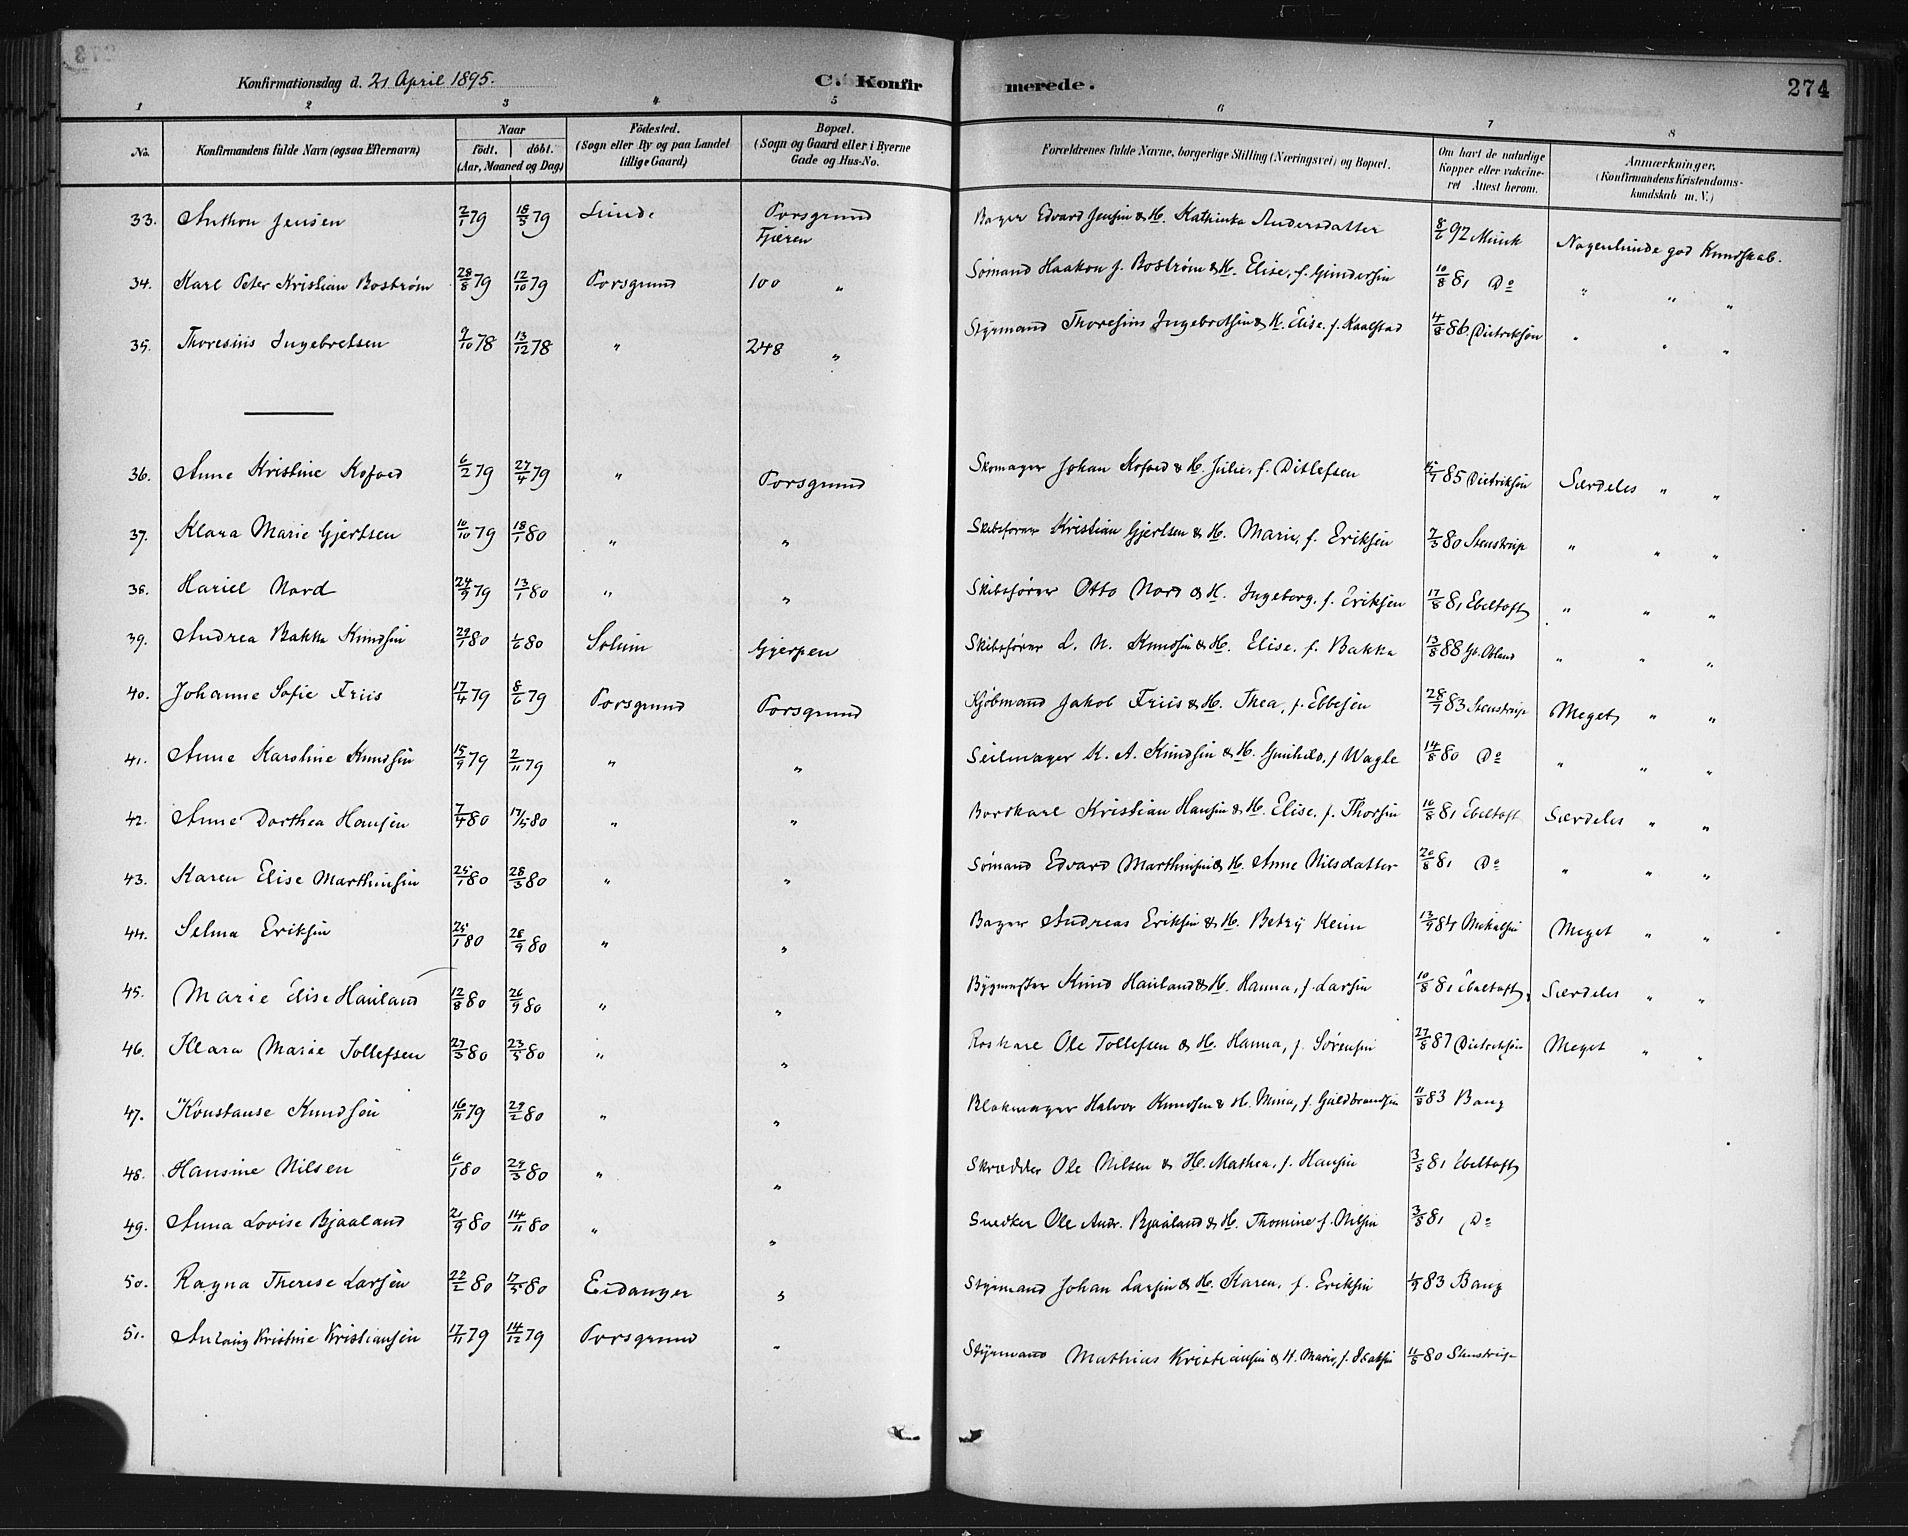 Konfirmationsdag d. 21 April 1895.
C. Konfirmerede.
274
1 2 3 4 5 6 7 8
No. Konfirmandens fulde Navn (ogsaa Efternavn) Naar födt. döbt. (Aar, Maaned og Dag) Födested. (Sogn eller By og paa Landet tillige Gaard) Bopæl. (Sogn og Gaard eller i Byerne Gade og Hus-No. Forældrenes fulde Navne, borgerlige Stilling (Næringsvei) og Bopæl. Om havt de naturlige Kopper eller vakcineret Attest herom. Anmærkninger, (Konfirmandens Kristendomskundskab m. V.)
33. Anthon Jensen 2/1 79 18/3 79 Lunde Porsgrund Tjæren Bager Edvard Jensen & H. Kathinka Andersdatter 8/6 92 Munk Nogenlunde god Kundskab.
34. Karl Peter Kristian Boström 28/8 79 12/10 79 Porsgrund 100 " Sømand Haakon J. Boström & H. Elise, f. Gundersen 10/8 81 Do " " "
35. Thoresius Ingebretsen 9/10 78 13/12 78 " 248 " Styrmand Thoresius Ingebretsen & H. Elise. f. Kaalstad 4/8 86 Dietrikson " " "
36. Anne Kristine Kofoed 6/2 79 27/4 79 " Porsgrund Skomager Johan Kofoed & H. Julie, f. Ditlefsen 85 Dietrikson Særdeles " "
37. Klara Marie Gjertsen 10/10 79 18/1 80 " " Skibsfører Kristian Gjertsen & H. Marie, f. Eriksen 7/5 80 Stenstrup " " "
38. Hariel Nord 24/9 79 13/1 80 " " Skibsfører Otto Nord & H. Ingeborg. f. Eriksen 17/8 81 Ebeltoft " " "
39. Andrea Bakka Knudsen 29/1 80 1/6 80 Solum Gjerpen Skibsfører L. N. Knudsen & H. Elise. f. Bakka 13/8 88 " " "
40. Johanne Sofie Friis 17/4 79 8/6 79 Porsgrund Porsgrund Kjöbmand Jakob Friis & H. Thea, f. Ebbesen 28/9 83 Stenstrup Meget " "
41. Anne Karoline Knudsen 15/9 79 2/11 79 " " Seilmager K. A. Knudsen & H. Gunhild, f Wagle 14/8 80 Do " " "
42. Anne Dorthea Hansen 7/4 80 17/5 80 " " Bordkarl Kristian Hansen & H. Elise. f. Thorsen 10/8 81 Ebeltoft Særdeles " "
43. Karen Elise Marthinsen 25/1 80 28/3 80 " " Sømand Edvard Marthinsen & H. Anne Nilsdatter 20/8 81 Do " " "
44. Selma Eriksen 25/1 80 28/9 80 " " Bager Andreas Eriksen & H. Betzy Keim 13/9 84 Mikalsen Meget " "
45. Marie Elise Hauland 12/8 80 26/9 80 " " Bygmester Knud Hauland & H. Hanna, f. Larsen 10/8 81 Ebeltoft Særdeles " "
46. Klara Marie Tollefsen 27/3 80 23/5 80 " " Ole Tollefsen & H. Hanna, f. Sørensen 27/8 87 Dietrikson Meget " "
47. Konstanse Knudsön 16/11 79 29/2 80 " " Blokmager Halvor Knudsen & H. Mina, f. Guldbrandsen 11/8 83 Bang
48. Hansine Nilsen 6/1 80 29/3 80 " " Skrædder Ole Nilsen & H. Mathea, f. Hansen 3/8 81 Ebeltoft
49. Anna Lovise Bjaaland 21/9 80 14/11 80 " " Snedker Ole Andr. Bjaaland & H. Thomine f. Nilsen 3/8 81 Do
50. Ragna Therese Larsen 22/2 80 17/5 80 Eidanger " Styrmand Johan Larsen & H. Karen, f. Eriksen 1/9 83 Bang
51. Kristine Kristiansen 17/11 79 14/12 79 Porsgrund " Styrmand Mathias Kristiansen & H. Marie, f. Isaksen 11/8 80 Stenstrup